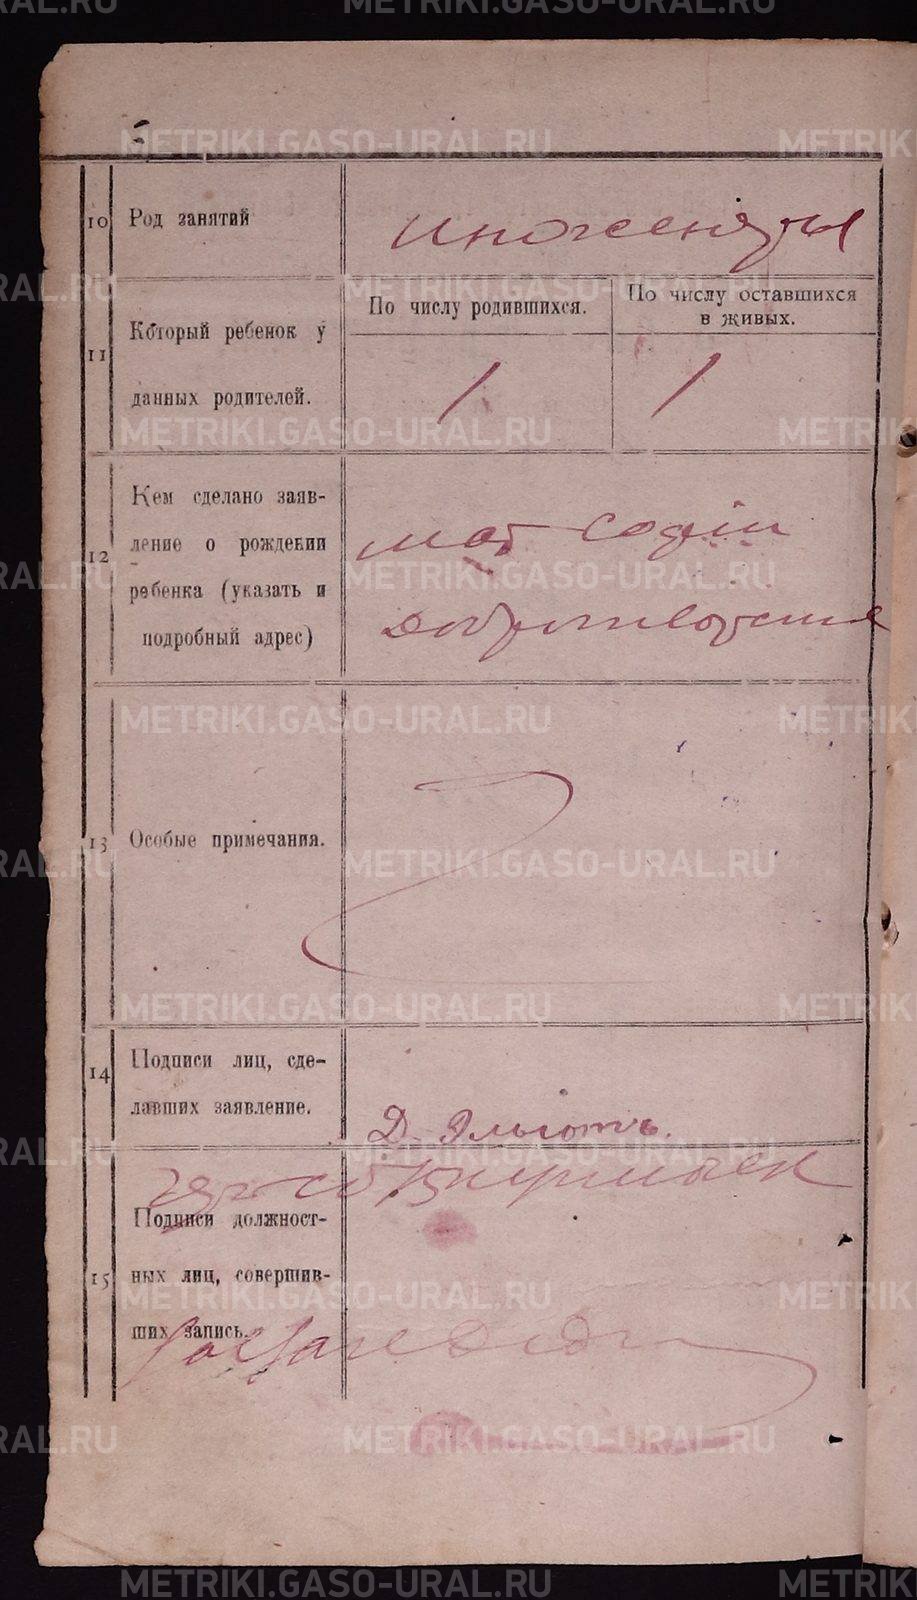 10 Род занятий
инженеры
11 Который ребенок у
данных родителей.
По числу родившихся.
По числу оставшихся
в живых.
1 1
12 Кем сделано заяв-
ление о рождении
ребенка (указать и
подробный адрес)
мат Софии
13 Особые примечания.
14 Подписи лиц, сде-
лавших заявление.
Д. Эльготъ.
15 Подписи должност-
ных лиц, совершив-
ших запись.
METRIKI.GASO-URAL.RU